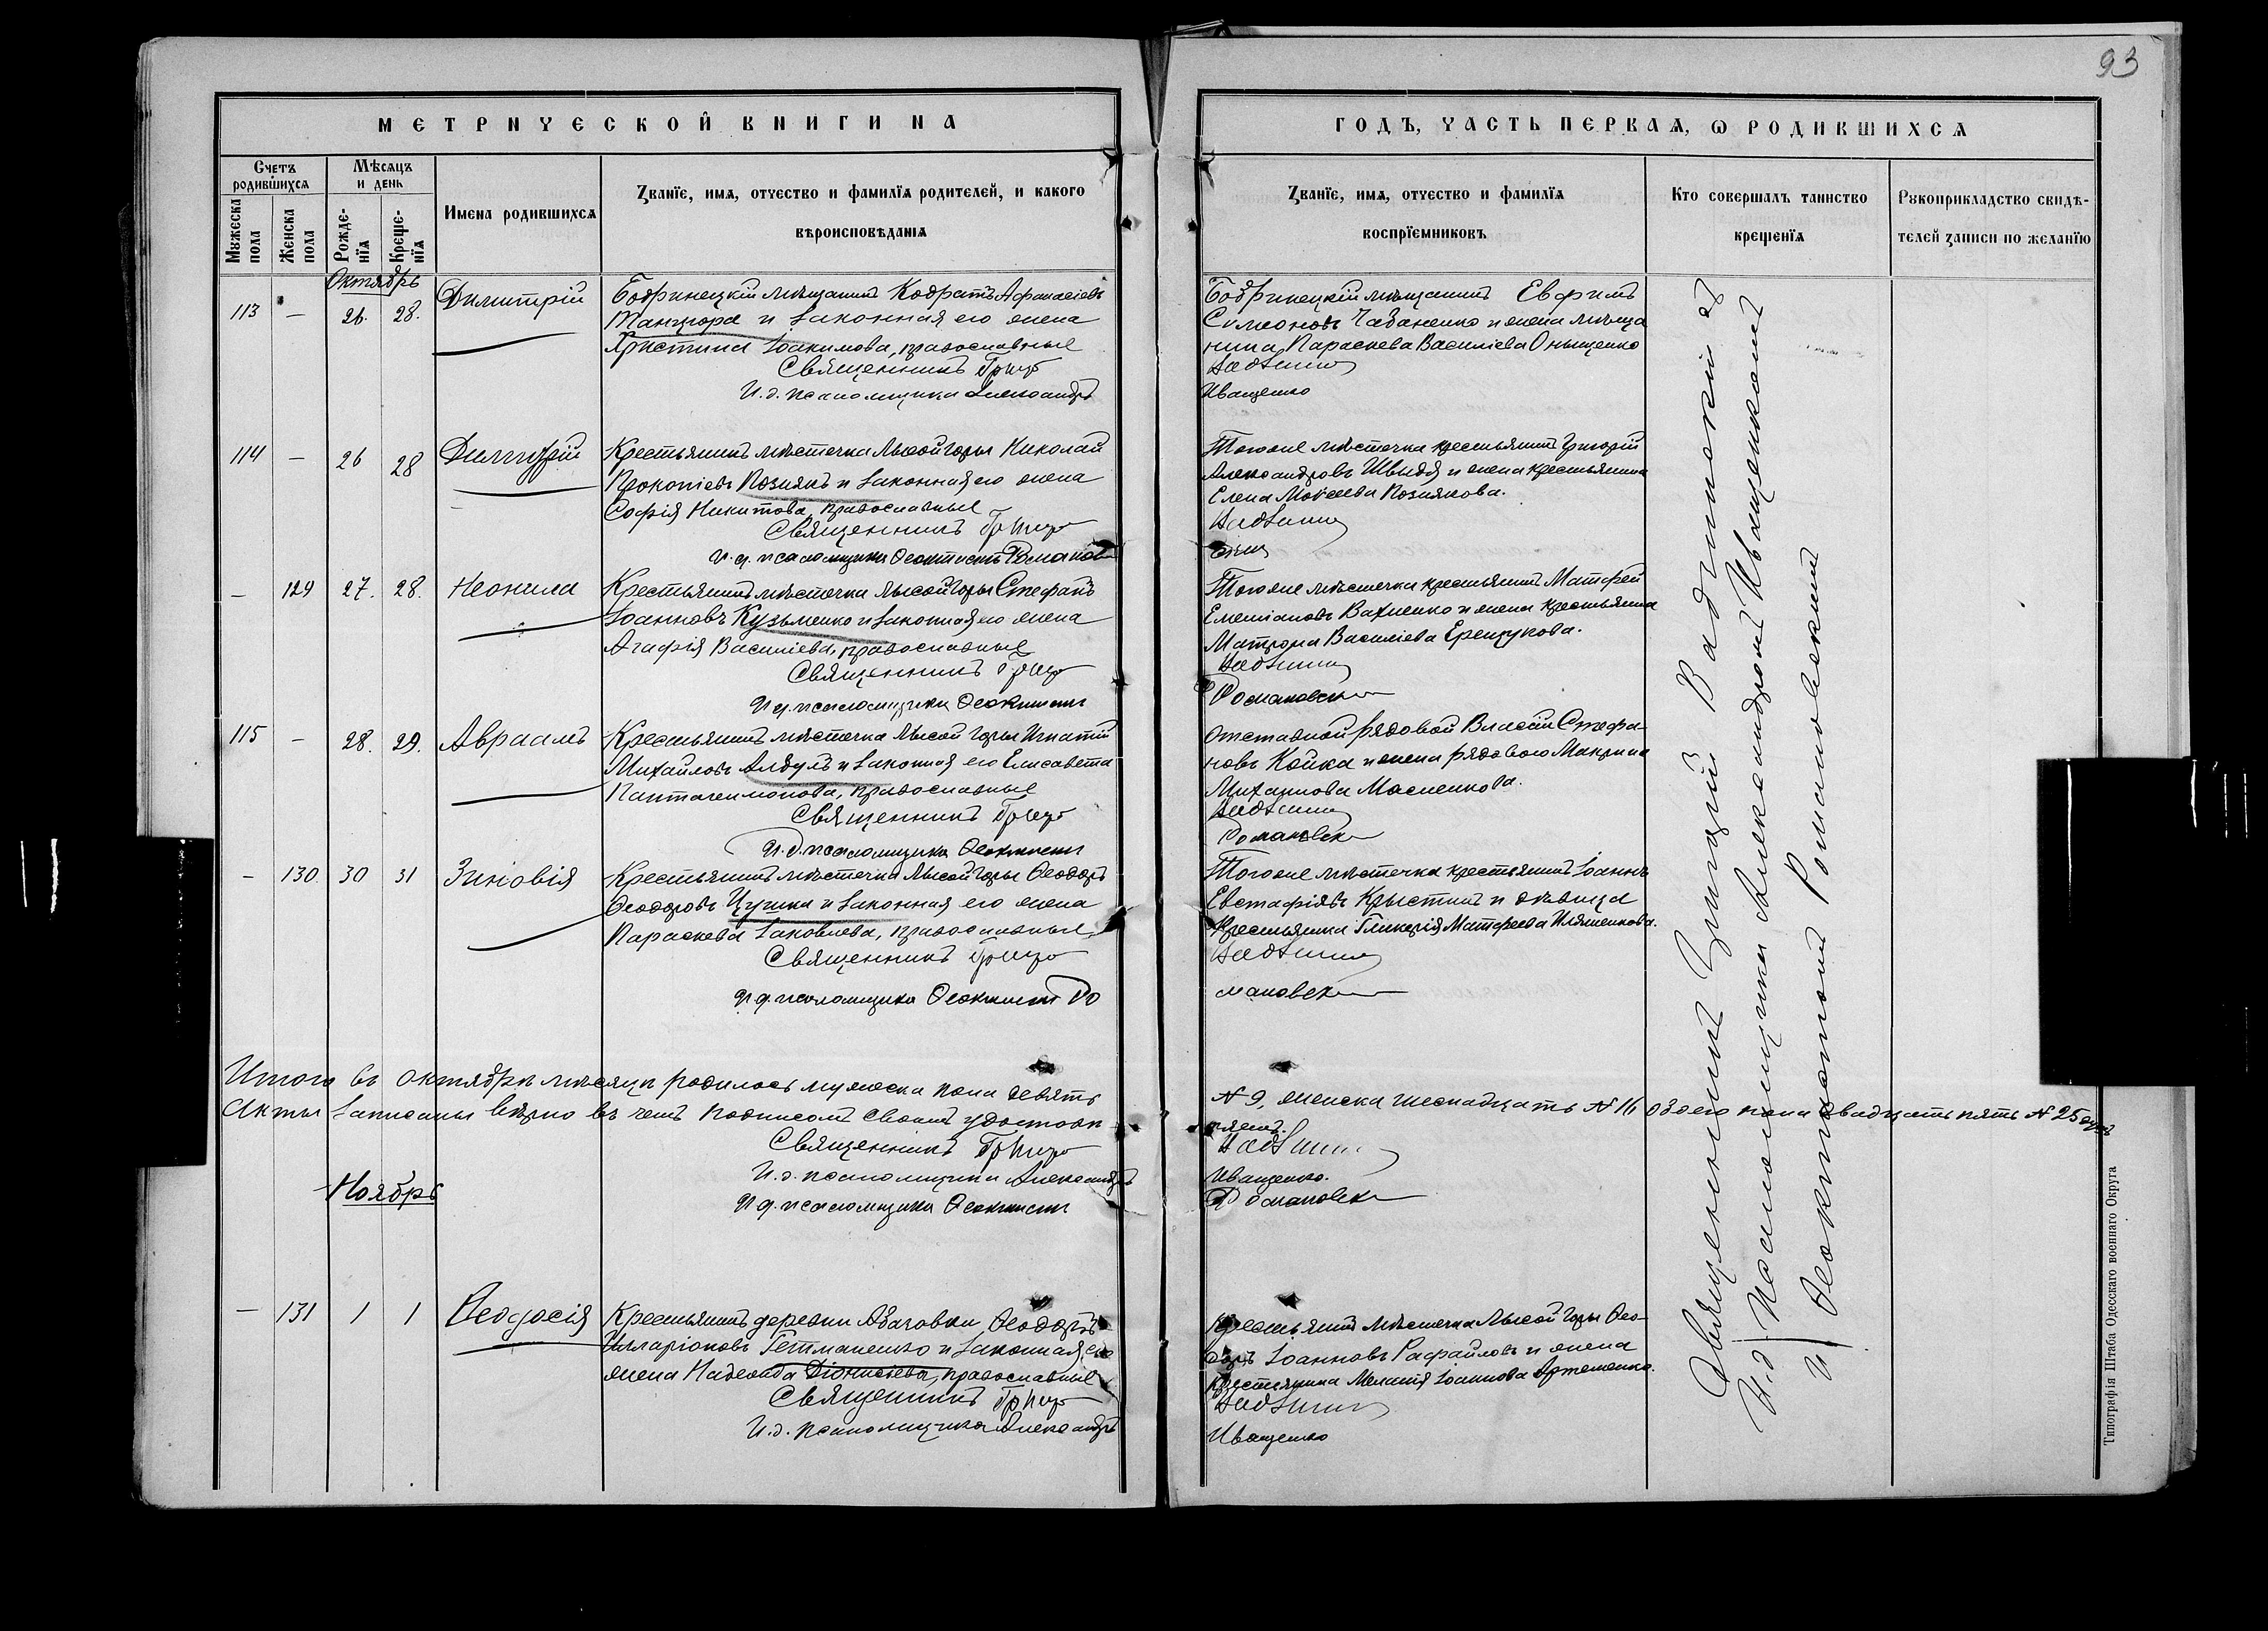 93
МЕТРИЧЕСКОЙ КНИГИ НА
ГОДЪ, ЧАСТЬ ПЕРВАЯ, Ѡ РОДИВШИХСЯ
Счетъ родившихся
Мѣсяцъ и день
Мужеска пола
Женска пола
Рожде-нїя
Креще-нїя
Имена родившихся
Званїе, имя, отчество и фамилїя родителей, и какого
вѣроисповѣданія
Званїе, имя, отчество и фамилїя
воспрїемниковъ
Кто совершалъ таинство
крещенїя
Рукоприкладство свидѣ-
телей записи по желанїю
Октябрь
113 — 26. 28. Димитрій
Бобринецкій мѣщанинъ Кодратъ Афанасіевъ
Танцюра и законная его жена
Христина Іоакимова, православные
Священникъ Григо
И. д. псаломщика Александръ
Бобринецкій мѣщанинъ Евфимъ
Симеоновъ Чабаненко и жена мѣща
нина Параскева Василіева Онищенко
Иващенко
114 — 26 28 Димитрій
Крестьянинъ мѣстечка Лысой горы Николай
Прокопіевъ Познякъ и законная его жена
Софія Никитова, православные
Священникъ Григо
И. д. псаломщика Ѳеоктистъ Романов
Тогоже мѣстечка крестьянинъ Григорій
Александровъ Швыдя и жена крестьянина
Елена Моѵсеева Познякова.
— 129 27. 28. Неонила
Крестьянинъ мѣстечка Лысой горы Стефанъ
Іоанновъ Кузьменко и законная его жена
Агафія Василіева, православные
Священникъ Григо
И д. псаломщика Ѳеоктистъ
Тогоже мѣстечка крестьянинъ Матфей
Емеліановъ Вахненко и жена крестьянина
Матрона Василіева Ерещукова.
Романовск
115 — 28. 29. Авраамъ
Крестьянинъ мѣстечка Лысой горы Игнатій
Михайловъ и законная его Елисавета
Пантелеимонова, православные
Священникъ Григо
И. д. псаломщика Ѳеоктистъ
Отставной рядовой Власій Стефа-
новъ Койка и жена рядового Макрина
Михаилова Масленкова.
Романовск
— 130. 30 31 Зиновія
Крестьянинъ мѣстечка Лысой горы Ѳеодоръ
Ѳеодоровъ и законная его жена
Параскева Іаковлева, православные.
Священникъ Григо
И д. псаломщика Ѳеоктистъ Ро
Тогоже мѣстечка крестьянинъ Іоаннъ
Евстафіевъ и дѣвица
крестьянка Гликерія Матфеева Иляшенкова.
мановск
Итого въ октябрѣ мѣсяцѣ родилось мужеска пола девять
№ 9, женска шеснадцать № 16 обоего пола двадцать пять № 25 душъ
Акты записаны вѣрно въ чемъ подписомъ своимъ удостовѣ
ряемъ.
Священникъ Григо
И. д. псаломщика Александръ
Иващенко.
И д. псаломщика Ѳеоктистъ
Романовск
Ноябрь
— 131 1 1 Ѳеодосія
Крестьянинъ деревни Ѳеодоръ
Илларіоновъ Гетманенко и законная его
жена Надежда Діонисіева, православные
Священникъ Григо
И. д. псаломщика Александръ
Крестьянинъ мѣстечка Лысой горы Ѳео-
доръ Іоанновъ Рафаиловъ и жена
крестьянина Меланія Іоаннова Артеменко.
Иващенко
Священникъ Григорій
И. д. Псаломщика Александромъ Иващенкомъ
и Ѳеоктистомъ Романовскимъ
Типографія Штаба Одесскаго военнаго Округа